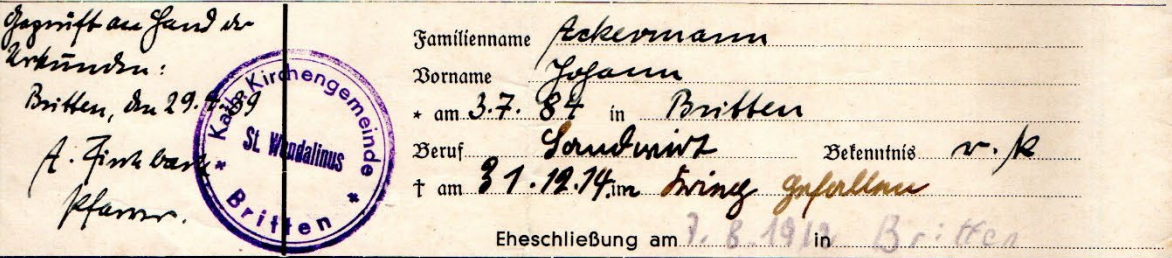 Geprüft an Hand der
Urkunden:
Britten, den 29.
Pfarrer.
Kath. Kirchengemeinde
St. Wendalinus
* Britten *
Familienname Ackermann
Vorname Johann
* am 3.7.84 in Britten
Beruf Landwirt Bekenntnis r. k
† am 31.12.14 im Krieg gefallen
Eheschließung am 7.8.1912 in Britten